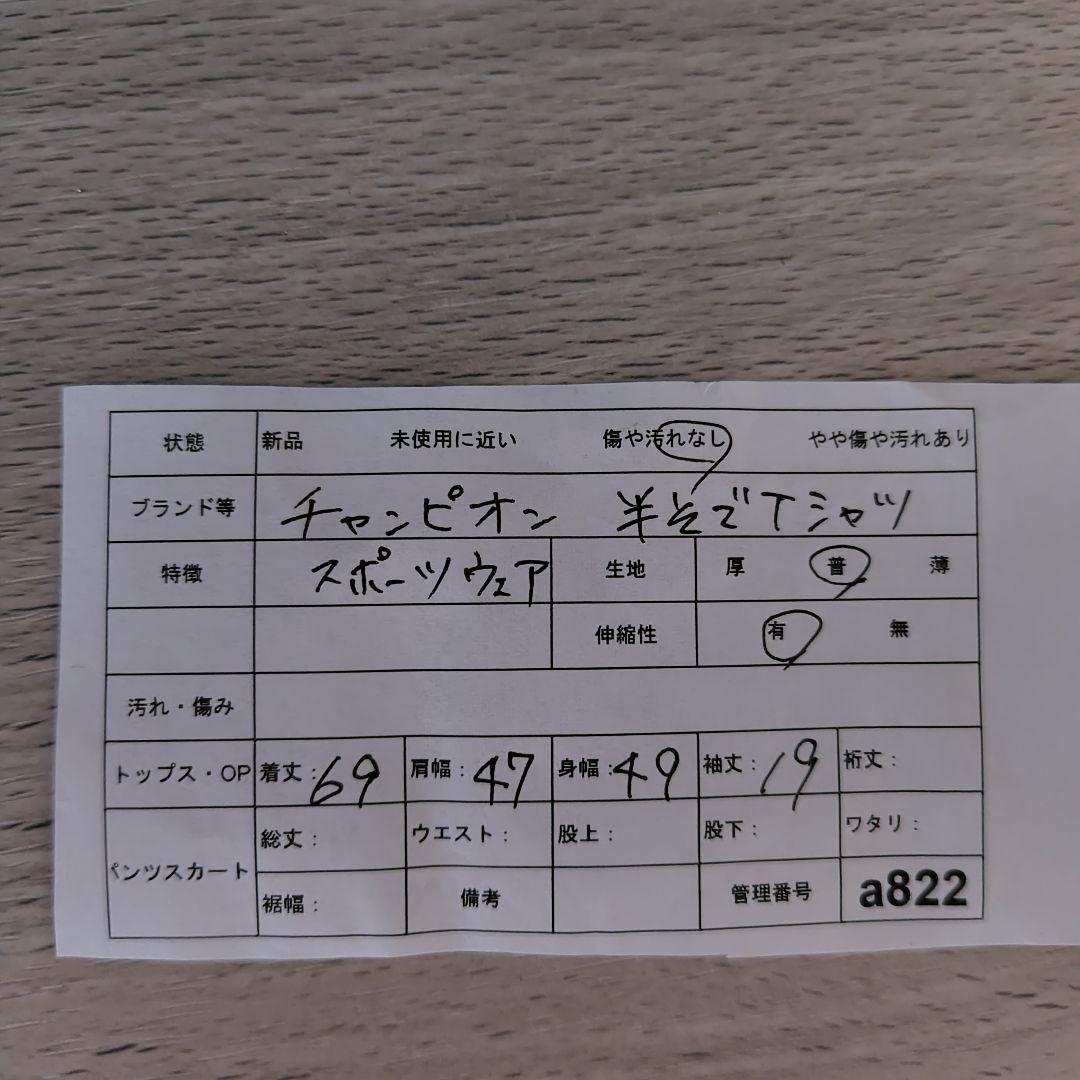 状態 新品 未使用に近い 傷や汚れなし やや傷や汚れあり
ブランド等 チャンピオン 半そでTシャツ
特徴 スポーツウェア 生地 厚 普 薄
伸縮性 有 無
汚れ・傷み
トップス・OP 着丈:69 肩幅:47 身幅:49 袖丈:19 裄丈:
パンツスカート 総丈: ウエスト: 股上: 股下: ワタリ:
裾幅: 備考 管理番号 a822